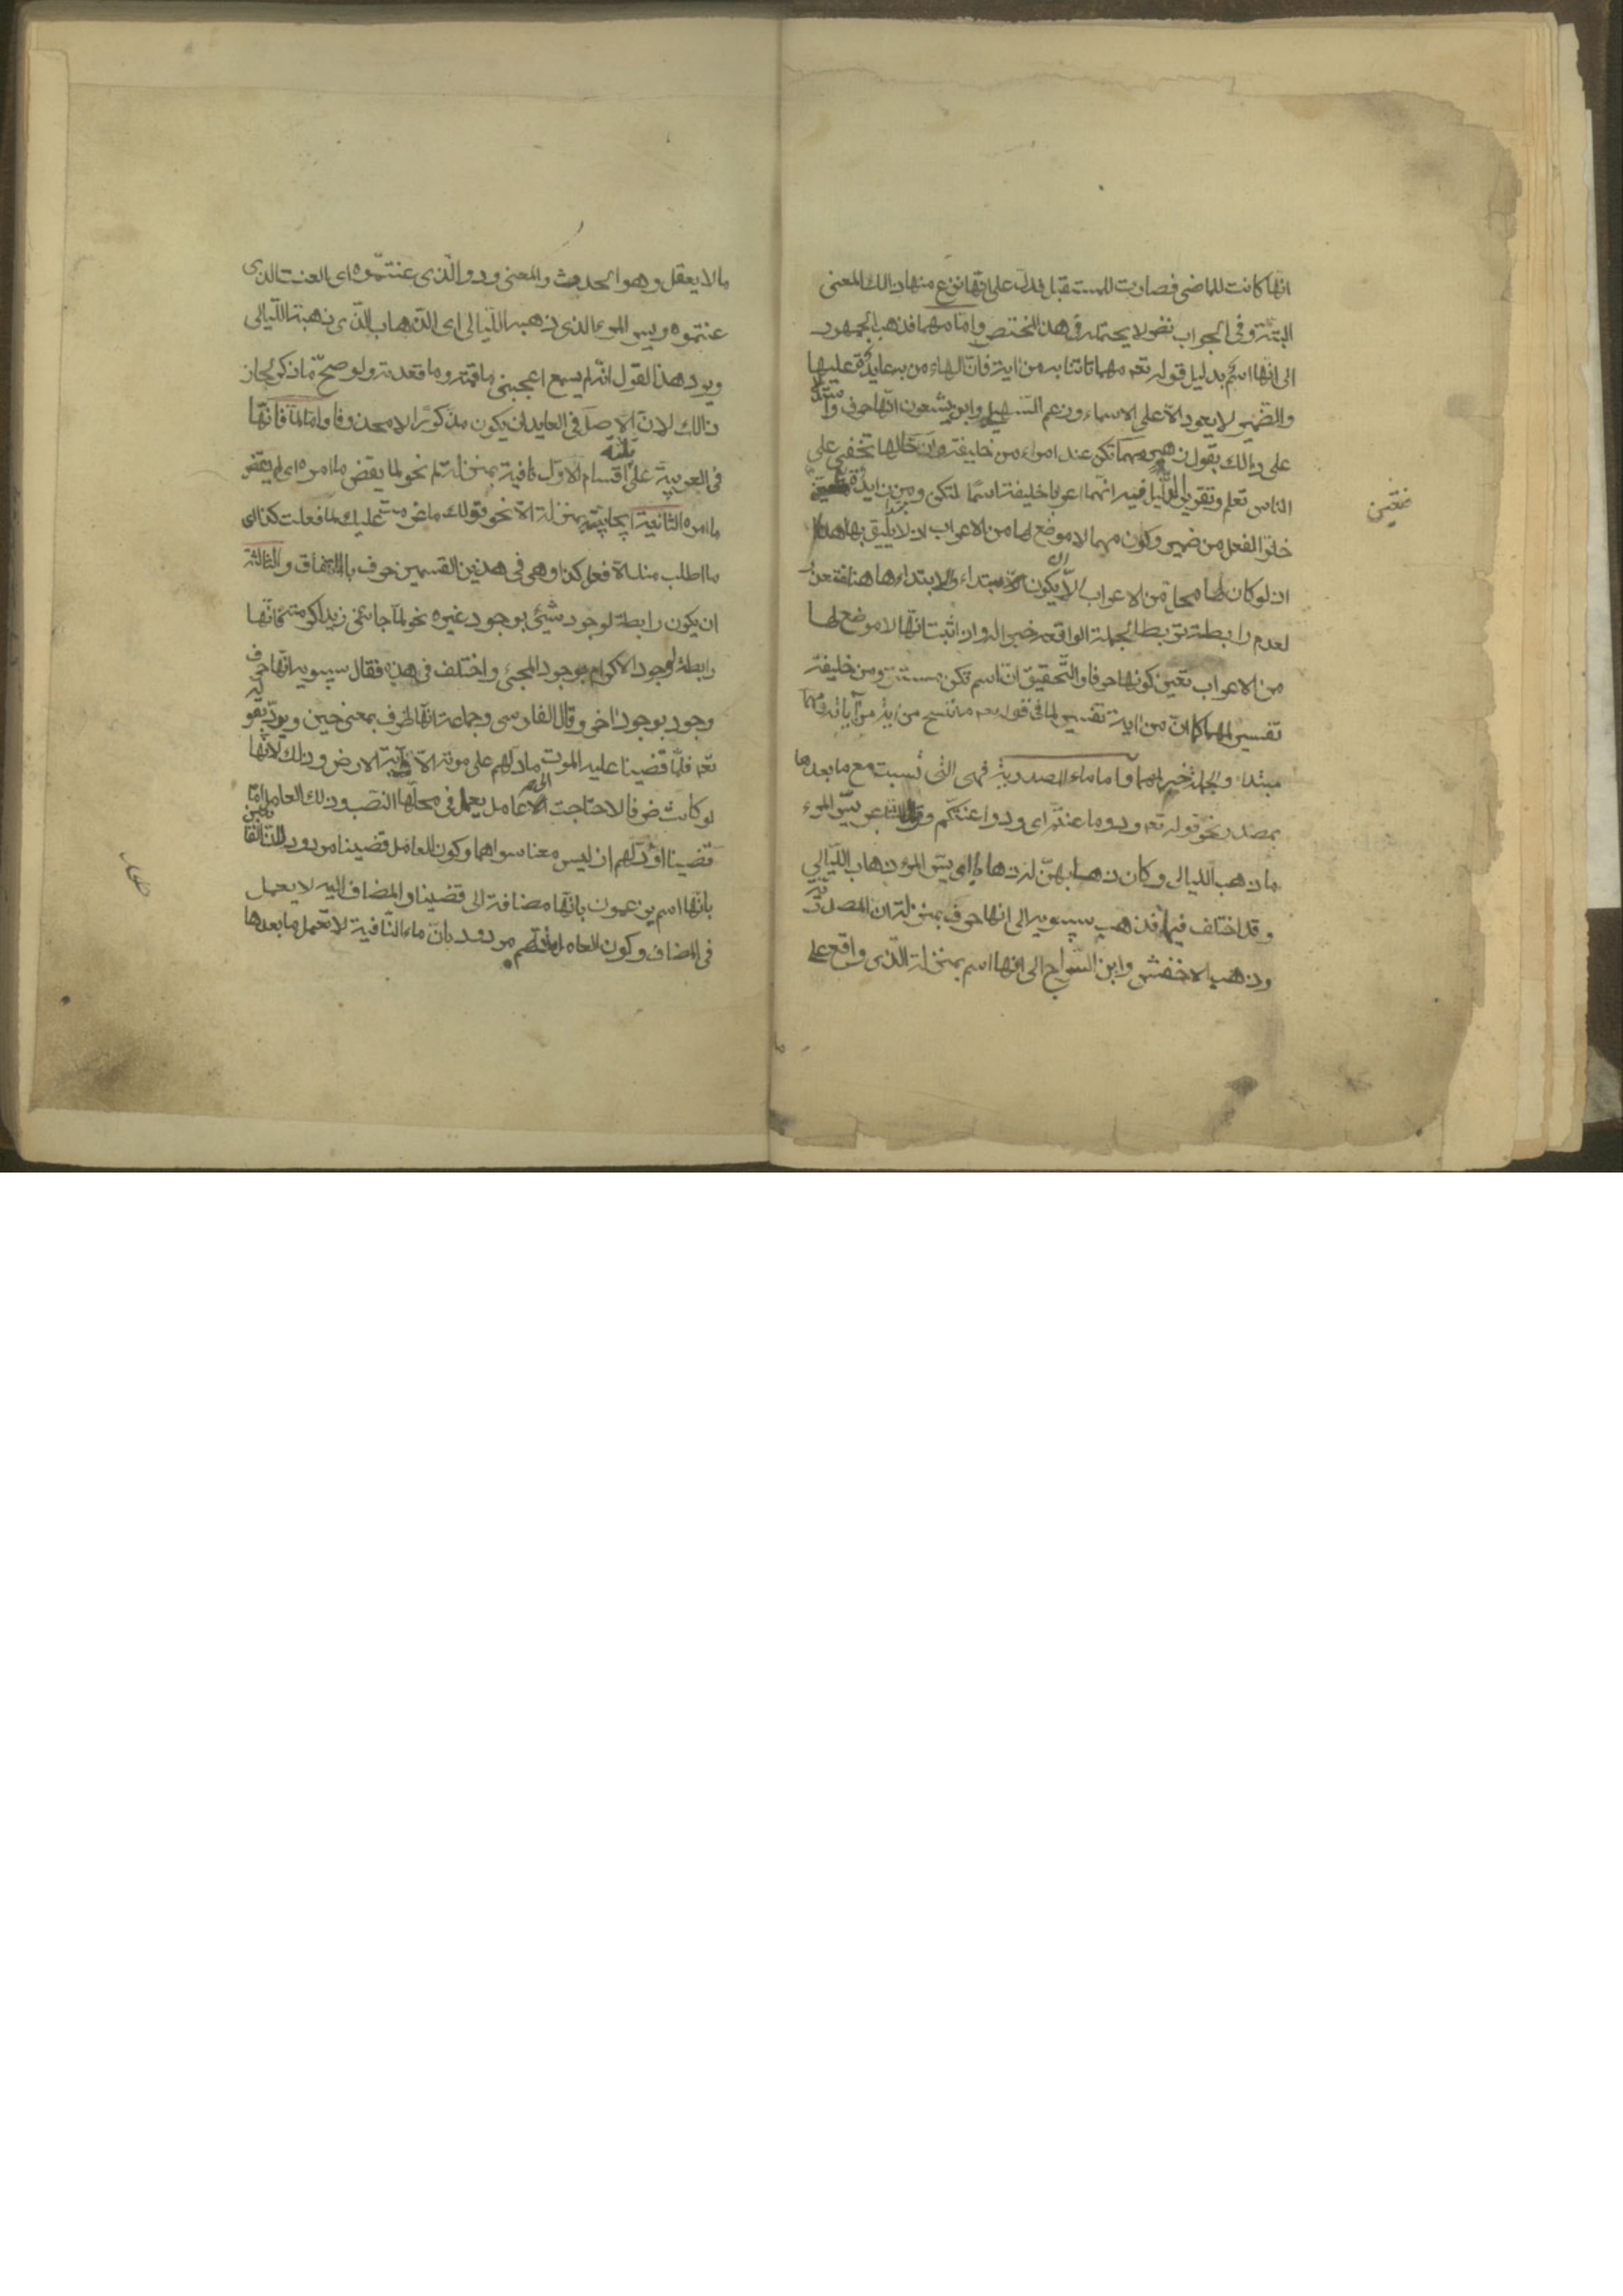 انها كانت للماضى فصارت للمستقبل فدل على انها نزع منها ذالك المعنى
البتة وفى الجواب نضر لا يحتمله هذا المختصر واما مهما فذهب الجمهور
الى انها اسم بدليل قوله تعه مهما تاتنا به من اية فان الهاء من به عايدة عليها
والضمير لا يعود الا على الاسماء وزعم السهيلى وابن يسعون انها حرف واستدلا
على ذالك بقول زهير ومهما تكن عند امرء من خليفة وان خالها تخفى على
الناس تعلم وتقرير الدليل فيه انهما اعربا خليفة اسما لتكن ومن زايدة فتعين
خلو الفعل من ضمير وكون مهما لا موضع لها من الاعراب اذ لا يليق بها هنا
اذ لو كان لها محل من الاعراب الا ان يكون الابتداء والابتداء ها هنا متعذر
لعدم رابطة تربط الجملة الواقعه خبرا له واذ اثبت انها لا موضع لها
من الاعراب تعين كونها حرفا والتحقيق ان اسم تكن مستتر ومن خليفة
تفسير لمهما كما ان من اية تفسير لما فى قوله تعه ما ننسخ من اية من آياته ومهما
مبتداء والجملة خبر لمهما واما ماء المصدرية فهى التى نسبت مع ما بعدها
بمصدر نحو قوله تعه ودوا ما عنتم اى ودوا عنتكم وقول الشاعر يسر المرء
ما ذهب الليالى وكان ذهابهن له ذهابا اى يسر المرء ذهاب الليالى
وقد اختلف فيها فذهب سيبويه الى انها حرف بمنزلة ان المصدرية
وذهب الاخفش وابن السراج الى انها اسم بمنزلة الذى واقع على
فتعين
ما لا يعقل وهو الحدوث والمعنى ودوا الذى عنتموه اى العنت الذى
عنتموه ويسر المرء الذى ذهبه الليالى اى الذهاب الذى ذهبته الليالى
ويرد هذا القول انه لم يسمع اعجبنى ما قمته وما قعدته ولو صح ما ذكر لجاز
ذالك لان الاصل فى العايد ان يكون مذكورا لا محذوفا واما لما فانها
فى العربية على ثلثه اقسام الاول نافية بمنزلة لم نحو لما يقض ما امره اى لم يقض
ما امره الثانية ايجابية بمنزلة الا نحو قولك عزمت عليك لما فعلت كذا اى
ما اطلب منك الا فعل كذا وهى فى هذين القسمين حرف باالاتفاق والثالثة
ان يكون رابطة لوجود شىء بوجود غيره نحو لما جائنى زيد اكرمته فانها
رابطة لوجود الاكرام بوجود المجئ واختلف فى هذه فقال سيبويه انها حرف
وجود بوجود اخر وقال الفارسى وجماعة انها ظرف بمعنى حين ويرد بقوله
تعه فلما قضينا عليه الموت ما دلهم على موته الا دابة الارض وذلك لانها
لو كانت ضرفا لاحتاجت الى عامل يعمل فى محلها النصب وذلك العامل اما
قضينا او دلهم اذ ليس معنا سواهما وكون العامل قضينا مردود
بانها اسم يزعمون بانها مضافة الى قضينا والمضاف اليه لا يعمل
فى المضاف وكون العامل دلهم مردود بان ماء النافية لا تعمل ما بعدها